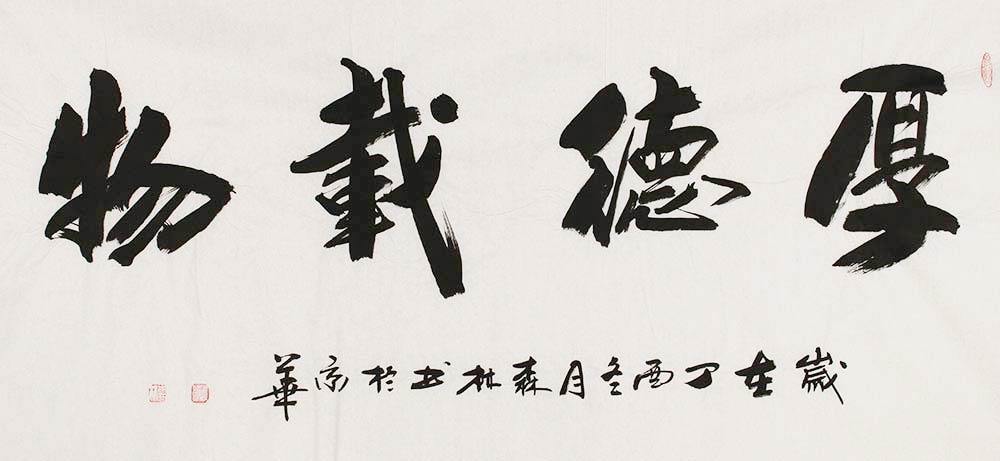 厚德載物
歲在丁酉冬月森林书於京華